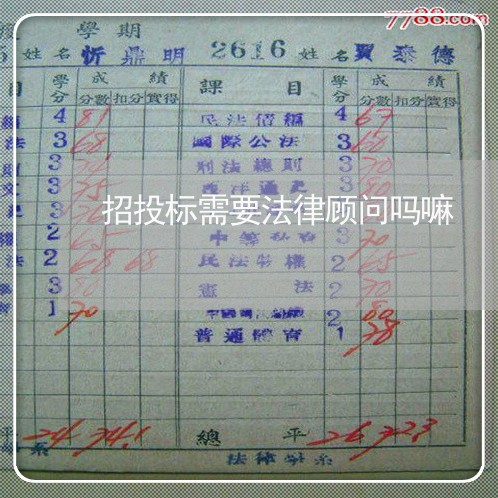 7788.com
學期
姓名 忻鼎明 2616 姓名 賈泰德
目 學分 成績 課目 學分 成績
分數 扣分 實得 分數 扣分 實得
4 81 民法債編 4 67
法 3 68 國際公法 3 60
3 刑法總則 3 70
3 75 西洋通史 3 80
招投标需要法律顾问吗嘛
2 65 3 70
法 2 68 68 民法物權 2 65
3 80 憲法 2 70
1 70 2 80
普通體育 1 78
平 24 74.1 總平 26 72.3
系 法律學系